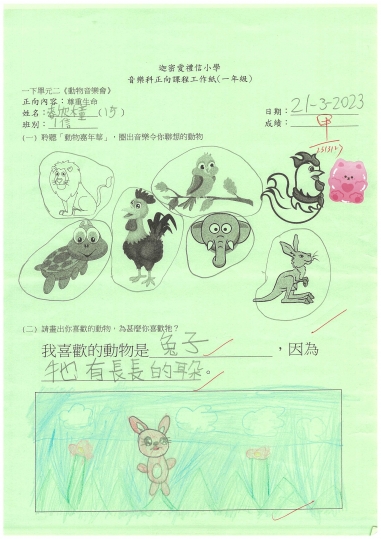 迦密愛禮信小學
音樂科正向課程工作紙(一年級)
一下單元二《動物音樂會》
正向內容：尊重生命
姓名：
日期：21-3-2023
班別：1信
成績：甲
(一) 聆聽「動物嘉年華」，圈出音樂令你聯想的動物
(二) 請畫出你喜歡的動物，為甚麼你喜歡牠？
我喜歡的動物是 兔子，因為
牠有長長的耳朵。